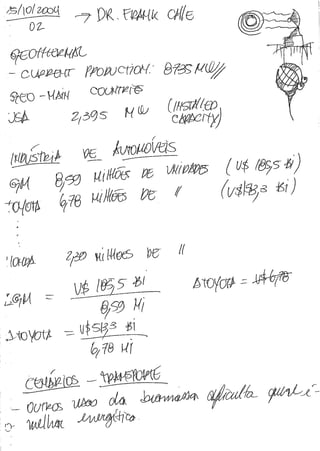 25/10/2004 → DR. FRANK
02
GEOTHERMAL
- CURRENT PRODUCTION: 8735 MW//
GEO - MAIN COUNTRIES
USA 2,395 MW (INSTALLED CAPACITY)
INDÚSTRIA DE AUTOMÓVEIS
GM 8,59 MILHÕES DE UNIDADES (U$ 185,5 Bi)
TOYOTA 6,78 MILHÕES DE " (U$ 3 Bi)
HONDA MILHÕES DE "
GM = U$ 185,5 Bi
8,59 Mi
ΔTOYOTA = U$ 6,78
ΔTOYOTA = U$ 3 Bi
6,78 Mi
CENÁRIOS - TRANSPORTE
- OUTROS usos da biomassa
melhor energético